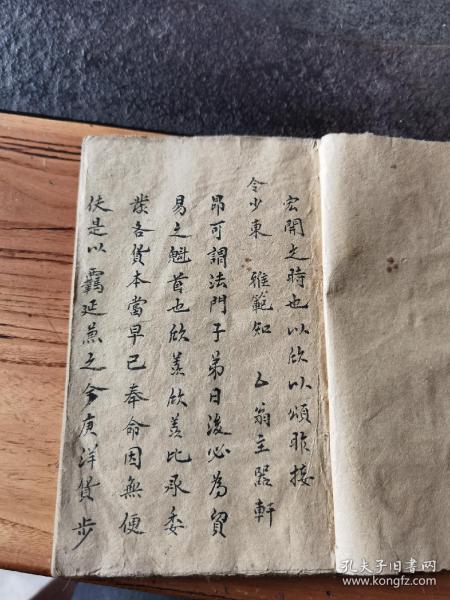 宏開之時也以欣以頌昨接
令少東 雅範知 乙翁主器軒
昂可謂法門子弟日後必為貿
易之魁首也欣羨欣羨比承委
各貨本當早已奉命因無便
伕是以羈延兼之今庚洋貨步
孔夫子旧书网
www.kongfz.com